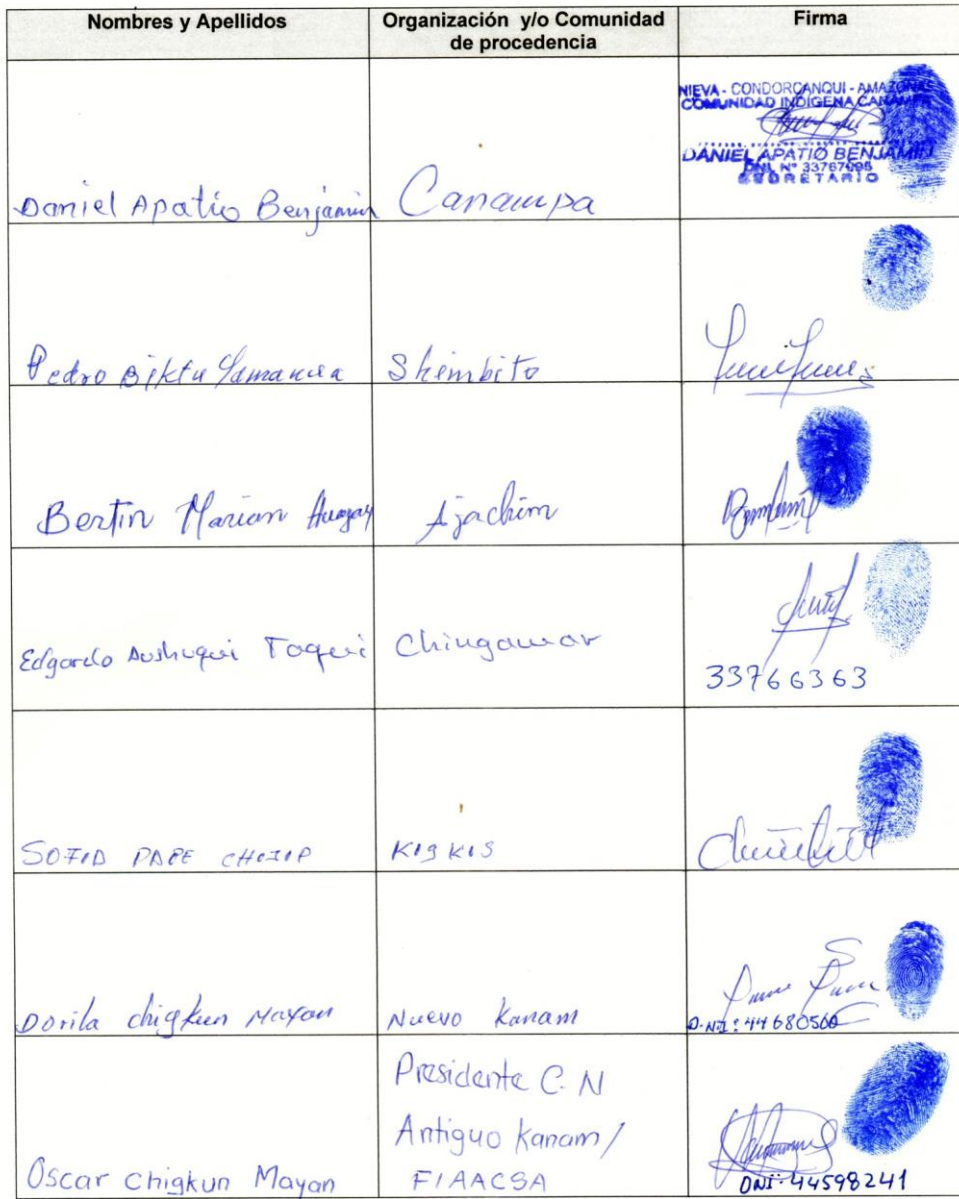 Nombres y Apellidos
Organización y/o Comunidad
de procedencia
Firma
Daniel Apatio Benjamin
Canampa
NIEVA - CONDORCANQUI - AMAZONAS
COMUNIDAD INDÍGENA CANAMPA
DANIEL APATIO BENJAMIN
DNI. Nº 33767096
SECRETARIO
Pedro Biktu
Shimbito
Bertin Marian
Ajachim
Edgardo Taqui
Chingamar
33766363
SOFID PAPE
KIGKIS
Dorila chigkun Mayan
Nuevo Kanam
D.NI: 44680560
Oscar Chigkun Mayan
Presidente C. N
Antiguo Kanam /
FIAACSA
DNI: 44598241